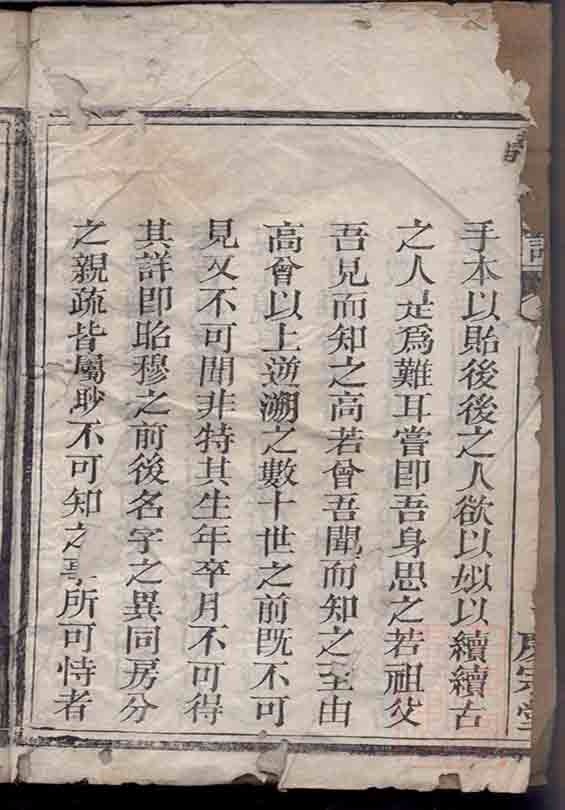 手本以貽後後之人欲以姒以續續古
之人是爲難耳嘗卽吾身思之若祖父
吾見而知之高若曾吾聞而知之至由
高曾以上逆溯之數十世之前旣不可
見又不可聞非特其生年卒月不可得
其詳卽昭穆之前後名字之異同房分
之親疏皆屬眇不可知之事所可恃者